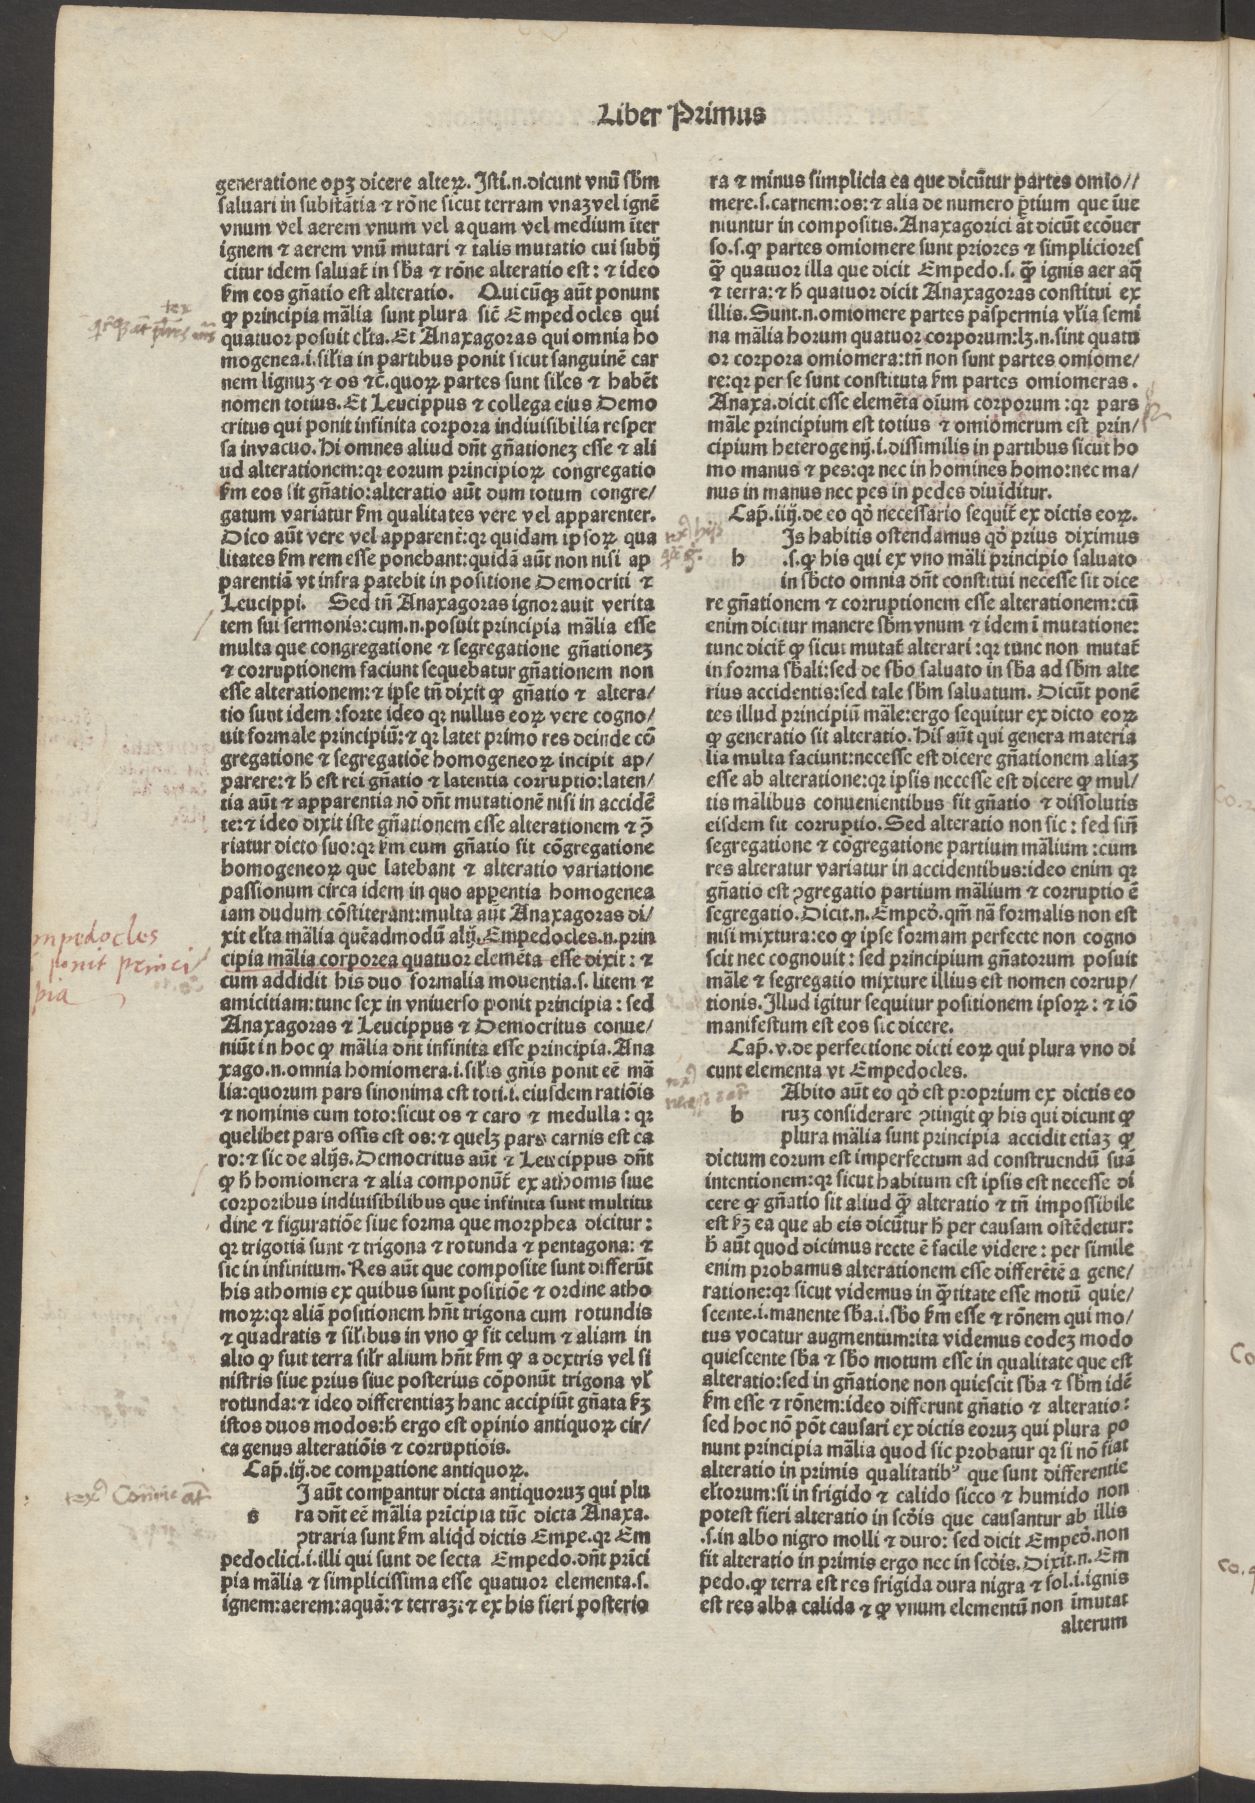 Liber Primus
generatione opꝫ dicere alteꝝ. Isti.n.dicunt vnū sb̄m
saluari in substātia ⁊ rōne sicut terram vnaꝫ vel ignē
vnum vel aerem vnum vel aquam vel medium īter
ignem ⁊ aerem vnū mutari ⁊ talis mutatio cui subij
citur idem saluat̄ in sb̄a ⁊ rōne alteratio est: ⁊ ideo
ẜm eos gn̄atio est alteratio. Quicūqꝫ aūt ponunt
ꝙ principia mālia sunt plura sic̄ Empedocles qui
quatuor posuit elt̄a. Et Anaxagoras qui omnia ho
mogenea.i.silia in partibus ponit sicut sanguinē car
nem lignuꝫ ⁊ os ⁊c̄.quoꝝ partes sunt siles ⁊ habēt
nomen totius. Et Leucippus ⁊ collega eius Demo
critus qui ponit infinita corpora indiuisibilia resper
sa invacuo. Hi omnes aliud dn̄t gn̄ationeꝫ esse ⁊ ali
ud alterationem:qꝛ eorum principioꝝ congregatio
ẜm eos sit gn̄atio:alteratio aūt dum totum congre/
gatum variatur ẜm qualitates vere vel apparenter.
Dico aūt vere vel apparent̄:qꝛ quidam ipsoꝝ qua
litates ẜm rem esse ponebant:quidā aūt non nisi ap
parentiā vt infra patebit in positione Democriti ⁊
Leucippi. Sed tn̄ Anaxagoras ignorauit verita
tem sui sermonis:cum.n.posuit principia mālia esse
multa que congregatione ⁊ segregatione gn̄ationeꝫ
⁊ corruptionem faciunt sequebatur gn̄ationem non
esse alterationem:⁊ ipse tn̄ dixit ꝙ gn̄atio ⁊ altera/
tio sunt idem:forte ideo qꝛ nullus eoꝝ vere cogno/
uit formale principiū:⁊ qꝛ latet primo res deinde cō
gregatione ⁊ segregatiōe homogeneoꝝ incipit ap/
parere:⁊ h̄ est rei gn̄atio ⁊ latentia corruptio:laten/
tia aūt ⁊ apparentia nō dn̄t mutationē nisi in accidē
te:⁊ ideo dixit iste gn̄ationem esse alterationem ⁊ ꝯ̄
riatur dicto suo:qꝛ ẜm eum gn̄atio sit cōgregatione
homogeneoꝝ que latebant ⁊ alteratio variatione
passionum circa idem in quo apparentia homogenea
iam dudum cōstiterant:multa aūt Anaxagoras di/
xit elt̄a mālia quēadmodū alij. Empedocles.n.prin
cipia mālia corporea quatuor elemēta esse dixit: ⁊
cum addidit his duo formalia mouentia.s.litem ⁊
amicitiam:tunc sex in vniuerso ponit principia: sed
Anaxagoras ⁊ Leucippus ⁊ Democritus conue/
niūt in hoc ꝙ mālia dn̄t infinita esse principia. Ana
xago.n.omnia homiomera.i.silis gn̄is ponit eē mā
lia:quorum pars sinonima est toti.i.eiusdem ratiōis
⁊ nominis cum toto:sicut os ⁊ caro ⁊ medulla: qꝛ
quelibet pars ossis est os:⁊ quelꝫ pars carnis est ca
ro:⁊ sic de alijs. Democritus aūt ⁊ Leucippus dn̄t
ꝙ h̄ homiomera ⁊ alia componūt̄ ex athomis siue
corporibus indiuisibilibus que infinita sunt multitu
dine ⁊ figuratiōe siue forma que morphea dicitur:
qꝛ trigotiā sunt ⁊ trigona ⁊ rotunda ⁊ pentagona: ⁊
sic in infinitum. Res aūt que composite sunt differūt
his athomis ex quibus sunt positiōe ⁊ ordine atho
moꝝ:qꝛ aliā positionem hn̄t trigona cum rotundis
⁊ quadratis ⁊ silibus in vno ꝙ sit celum ⁊ aliam in
alio ꝙ fuit terra silr alium hn̄t ẜm ꝙ a dextris vel si
nistris siue prius siue posterius cōponūt trigona vl̄
rotunda:⁊ ideo differentiaꝫ hanc accipiūt gn̄ata ẜꝫ
istos duos modos:h̄ ergo est opinio antiquoꝝ cir/
ca genus alteratiōis ⁊ corruptiōis.
Cap̄.iij.de comꝑatione antiquoꝝ.
I aūt comꝑantur dicta antiquoruꝫ qui plu
s ra dn̄t eē mālia prīcipia tūc dicta Anaxa.
ꝯtraria sunt ẜm aliqd dictis Empe.qꝛ Em
pedoclici.i.illi qui sunt de secta Empedo.dn̄t prīci
pia mālia ⁊ simplicissima esse quatuor elementa.s.
ignem:aerem:aquā:⁊ terraꝫ:⁊ ex his fieri posterio
ra ⁊ minus simplicia ea que dicūtur partes omio//
mere.s.carnem:os:⁊ alia de numero ꝑtium que īue
niuntur in compositis. Anaxagorici at̄ dicūt ecōuer
so.s.ꝙ partes omiomere sunt priores ⁊ simpliciores
ꝙ̄ quatuor illa que dicit Empedo.s. ꝙ̄ ignis aer aq̄
⁊ terra:⁊ h̄ quatuor dicit Anaxagoras constitui ex
illis. Sunt.n.omiomere partes pāspermia vl̄ia semi
na mālia horum quatuor corporum:lꝫ.n.sint quatu
or corpora omiomera:tn̄ non sunt partes omiome/
re:qꝛ per se sunt constituta ẜm partes omiomeras.
Anaxa.dicit esse elemēta oīum corporum:qꝛ pars
māle principium est totius ⁊ omiomerum est prin/
cipium heterogenij.i.dissimilis in partibus sicut ho
mo manus ⁊ pes:qꝛ nec in homines homo:nec ma/
nus in manus nec pes in pedes diuiditur.
Cap̄.iiij.de eo qd̓ necessario sequit̄ ex dictis eoꝝ.
Is habitis ostendamus qd̓ prius diximus
h .s.ꝙ his qui ex vno māli principio saluato
in sb̄cto omnia dn̄t constitui necesse sit dice
re gn̄ationem ⁊ corruptionem esse alterationem:cū
enim dicitur manere sb̄m vnum ⁊ idem ī mutatione:
tunc dicit̄ ꝙ sicut mutat̄ alterari:qꝛ tunc non mutat̄
in forma sb̄ali:sed de sb̄o saluato in sb̄a ad sb̄m alte
rius accidentis:sed tale sb̄m saluatum. Dicūt ponē
tes illud principiū māle:ergo sequitur ex dicto eoꝝ
ꝙ generatio sit alteratio. His aūt qui genera materia
lia multa faciunt:necesse est dicere gn̄ationem aliaꝫ
esse ab alteratione:qꝛ ipsis necesse est dicere ꝙ mul/
tis mālibus conuenientibus fit gn̄atio ⁊ dissolutis
eisdem fit corruptio. Sed alteratio non sic: sed sin̄
segregatione ⁊ cōgregatione partium mālium:cum
res alteratur variatur in accidentibus:ideo enim qꝛ
gn̄atio est ꝯgregatio partium mālium ⁊ corruptio ē
segregatio. Dicit.n.Emped̓. qm̄ nā formalis non est
nisi mixtura:eo ꝙ ipse formam perfecte non cogno
scit nec cognouit: sed principium gn̄atorum posuit
māle ⁊ segregatio mixture illius est nomen corrup/
tionis. Illud igitur sequitur positionem ipsoꝝ: ⁊ iō
manifestum est eos sic dicere.
Cap̄.v.de perfectione dicti eoꝝ qui plura vno di
cunt elementa vt Empedocles.
Abito aūt eo qd̓ est proprium ex dictis eo
h ruꝫ considerare ꝯtingit ꝙ his qui dicunt ꝙ
plura mālia sunt principia accidit etiaꝫ ꝙ
dictum eorum est imperfectum ad construendū suā
intentionem:qꝛ sicut habitum est ipsis est necesse di
cere ꝙ gn̄atio sit aliud ꝙ̄ alteratio ⁊ tn̄ impossibile
est ẜꝫ ea que ab eis dicūtur h̄ per causam ostēdetur:
h̄ aūt quod dicimus recte ē facile videre: per simile
enim probamus alterationem esse differētē a gene/
ratione:qꝛ sicut videmus in q̄titate esse motū quie/
scente.i.manente sb̄a.i.sb̄o ẜm esse ⁊ rōnem qui mo/
tus vocatur augmentum:ita videmus eodeꝫ modo
quiescente sb̄a ⁊ sb̄o motum esse in qualitate que est
alteratio:sed in gn̄atione non quiescit sb̄a ⁊ sb̄m idē
ẜm esse ⁊ rōnem:ideo differunt gn̄atio ⁊ alteratio:
sed hoc nō pōt causari ex dictis eoruꝫ qui plura po
nunt principia mālia quod sic probatur qꝛ si nō fiat
alteratio in primis qualitatibꝰ que sunt differentie
elt̄orum:si in frigido ⁊ calido sicco ⁊ humido non
potest fieri alteratio in scd̓is que causantur ab illis
.s.in albo nigro molli ⁊ duro: sed dicit Emped̓.non
fit alteratio in primis ergo nec in scd̓is. Dixit.n.Em
pedo.ꝙ terra est res frigida dura nigra ⁊ sol.i.ignis
est res alba calida ⁊ ꝙ vnum elementū non īmutat
alterum
mpedocles
ponit princi
pia